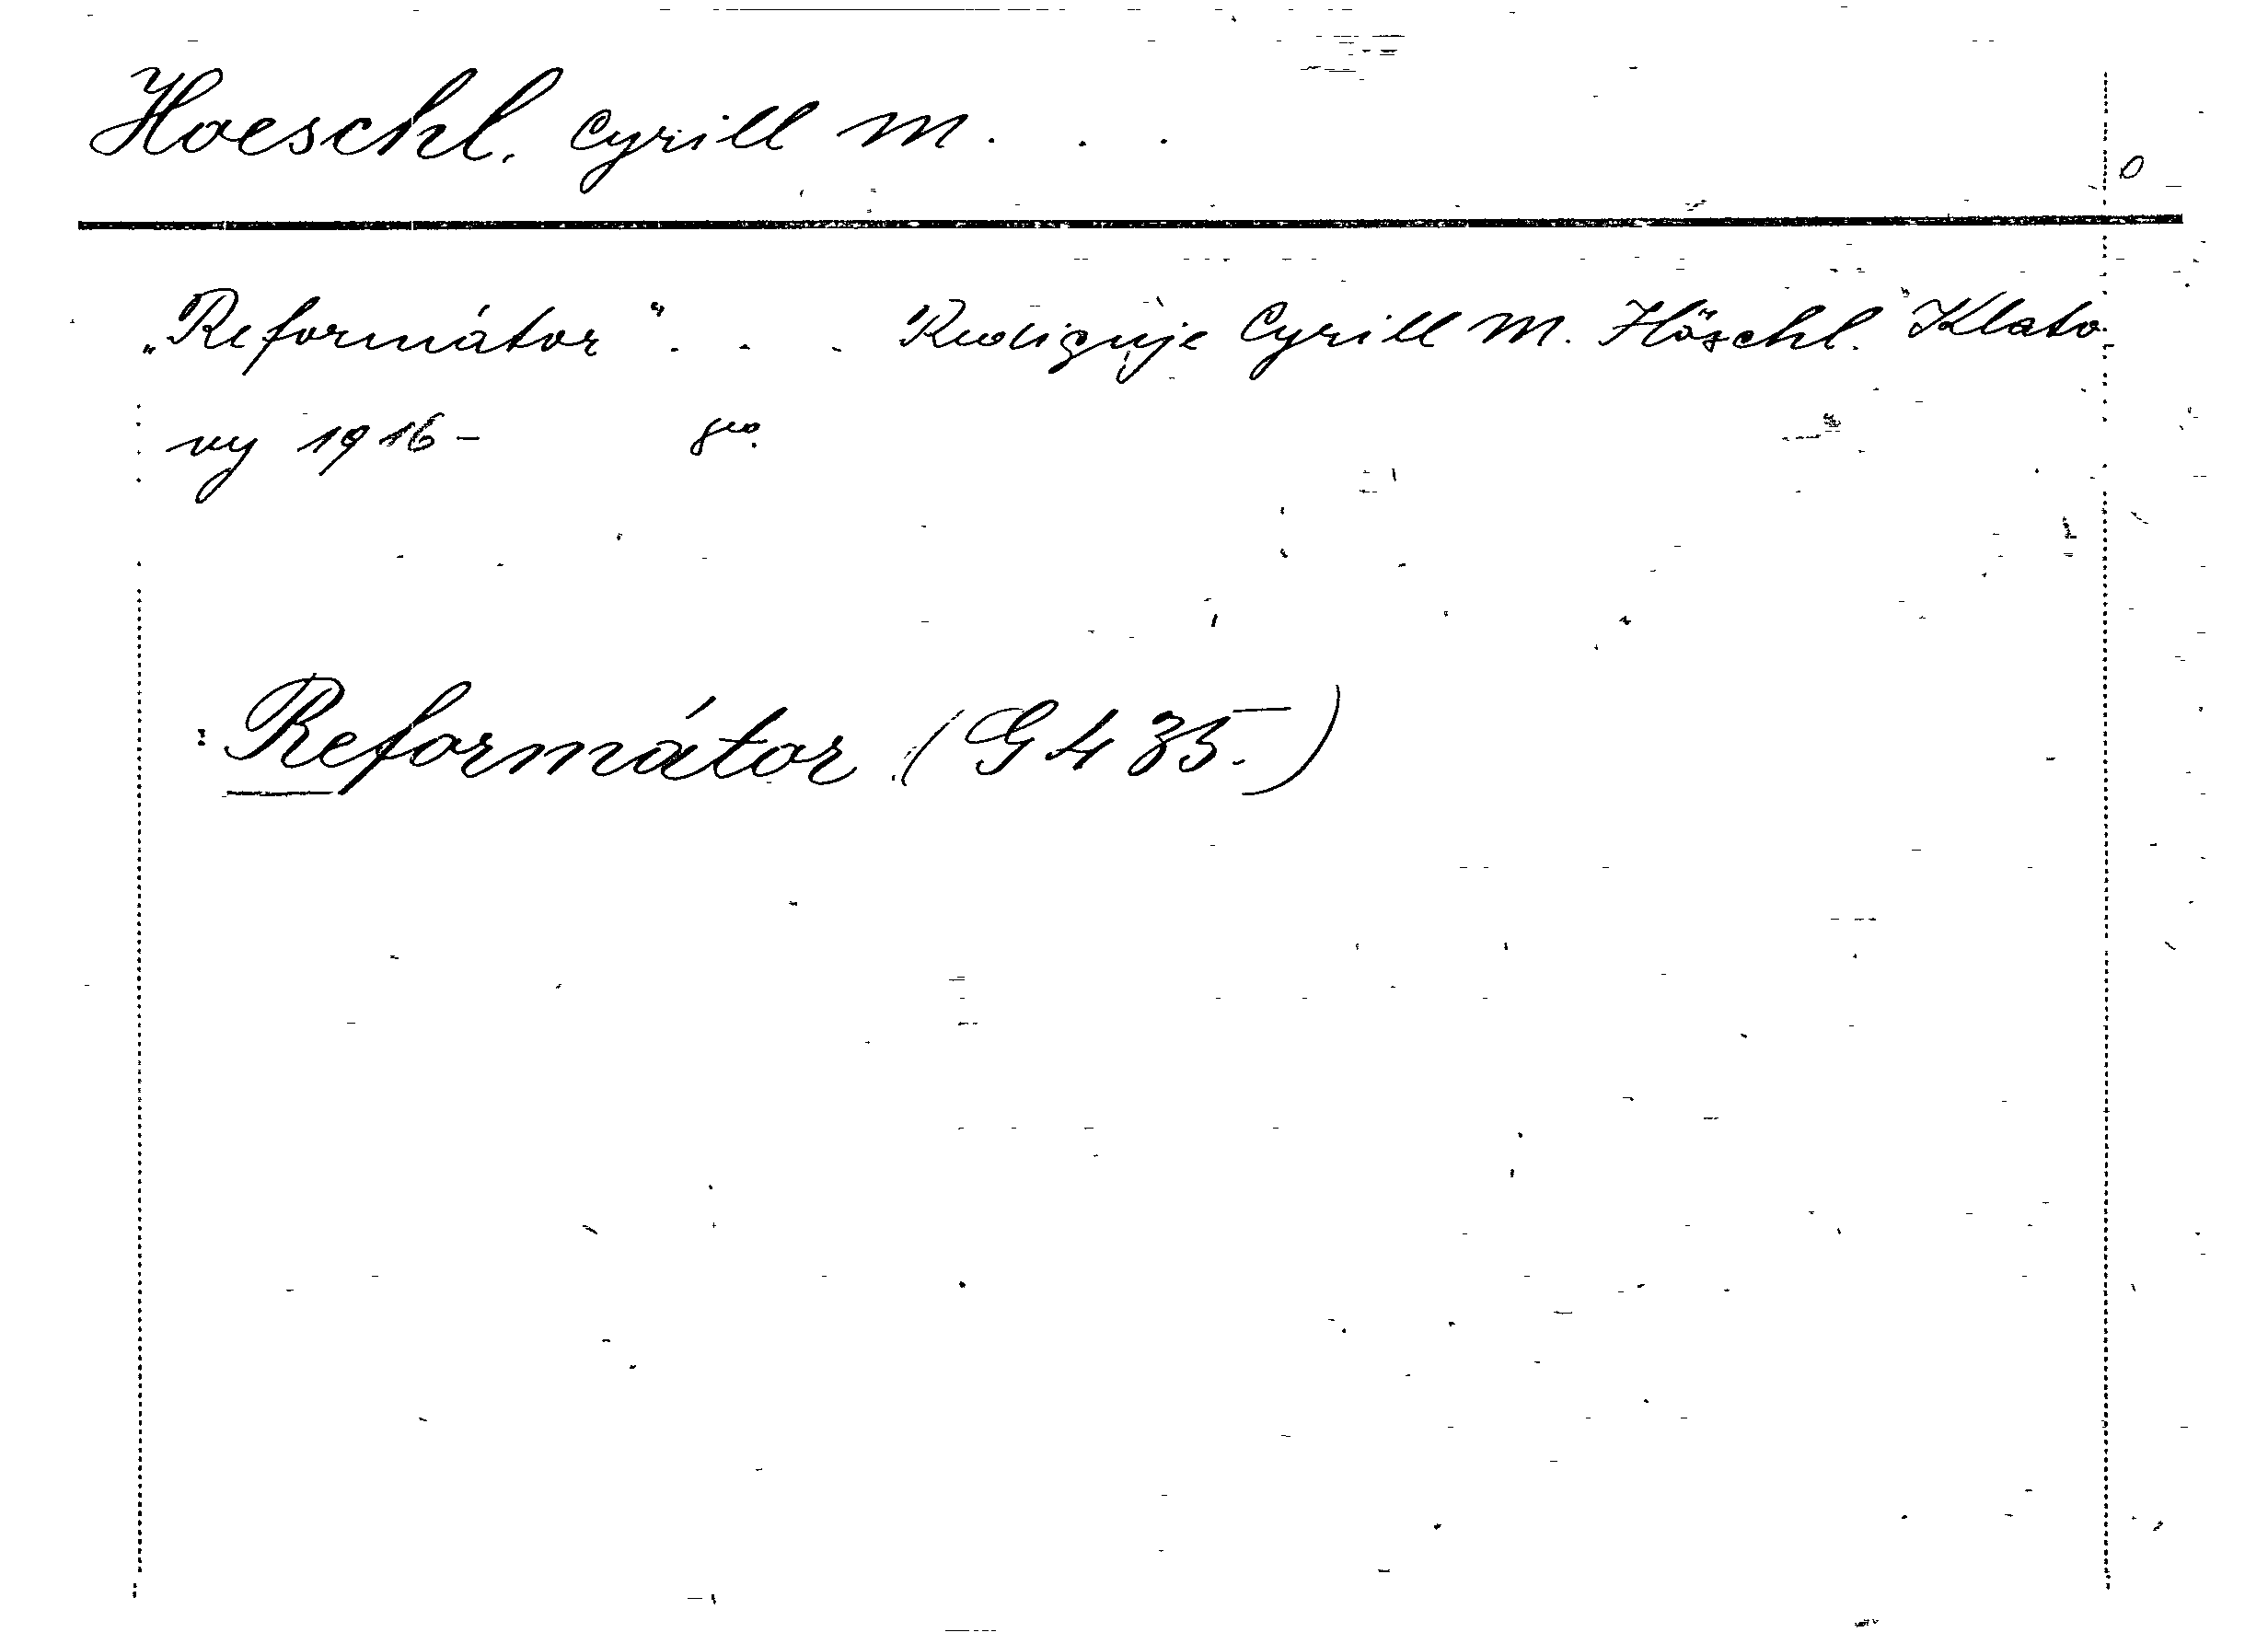 Hoeschl. Cyrill M. . .
0
„Reformátor“ . . . Rediguje Cyrill M. Höschl. Klato-
vy 1916- 8º.
: Reformátor (G 435.)